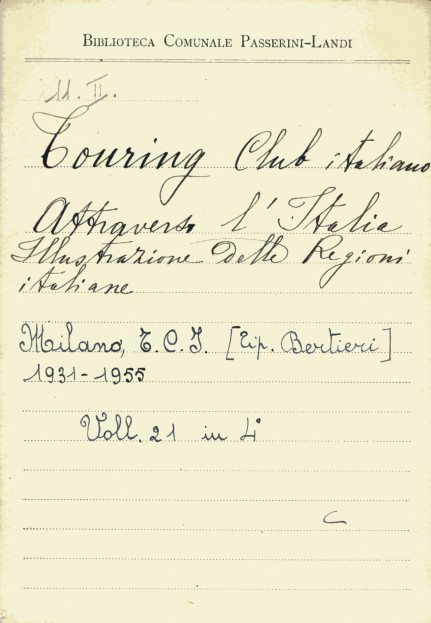 BIBLIOTECA COMUNALE PASSERINI-LANDI
11. II.
Touring Club italiano
Attraverso l'Italia
Illustrazione delle Regioni
italiane
Milano, T. C. I. [Tip. Bertieri]
1931-1955
Voll. 21 in 4°
C